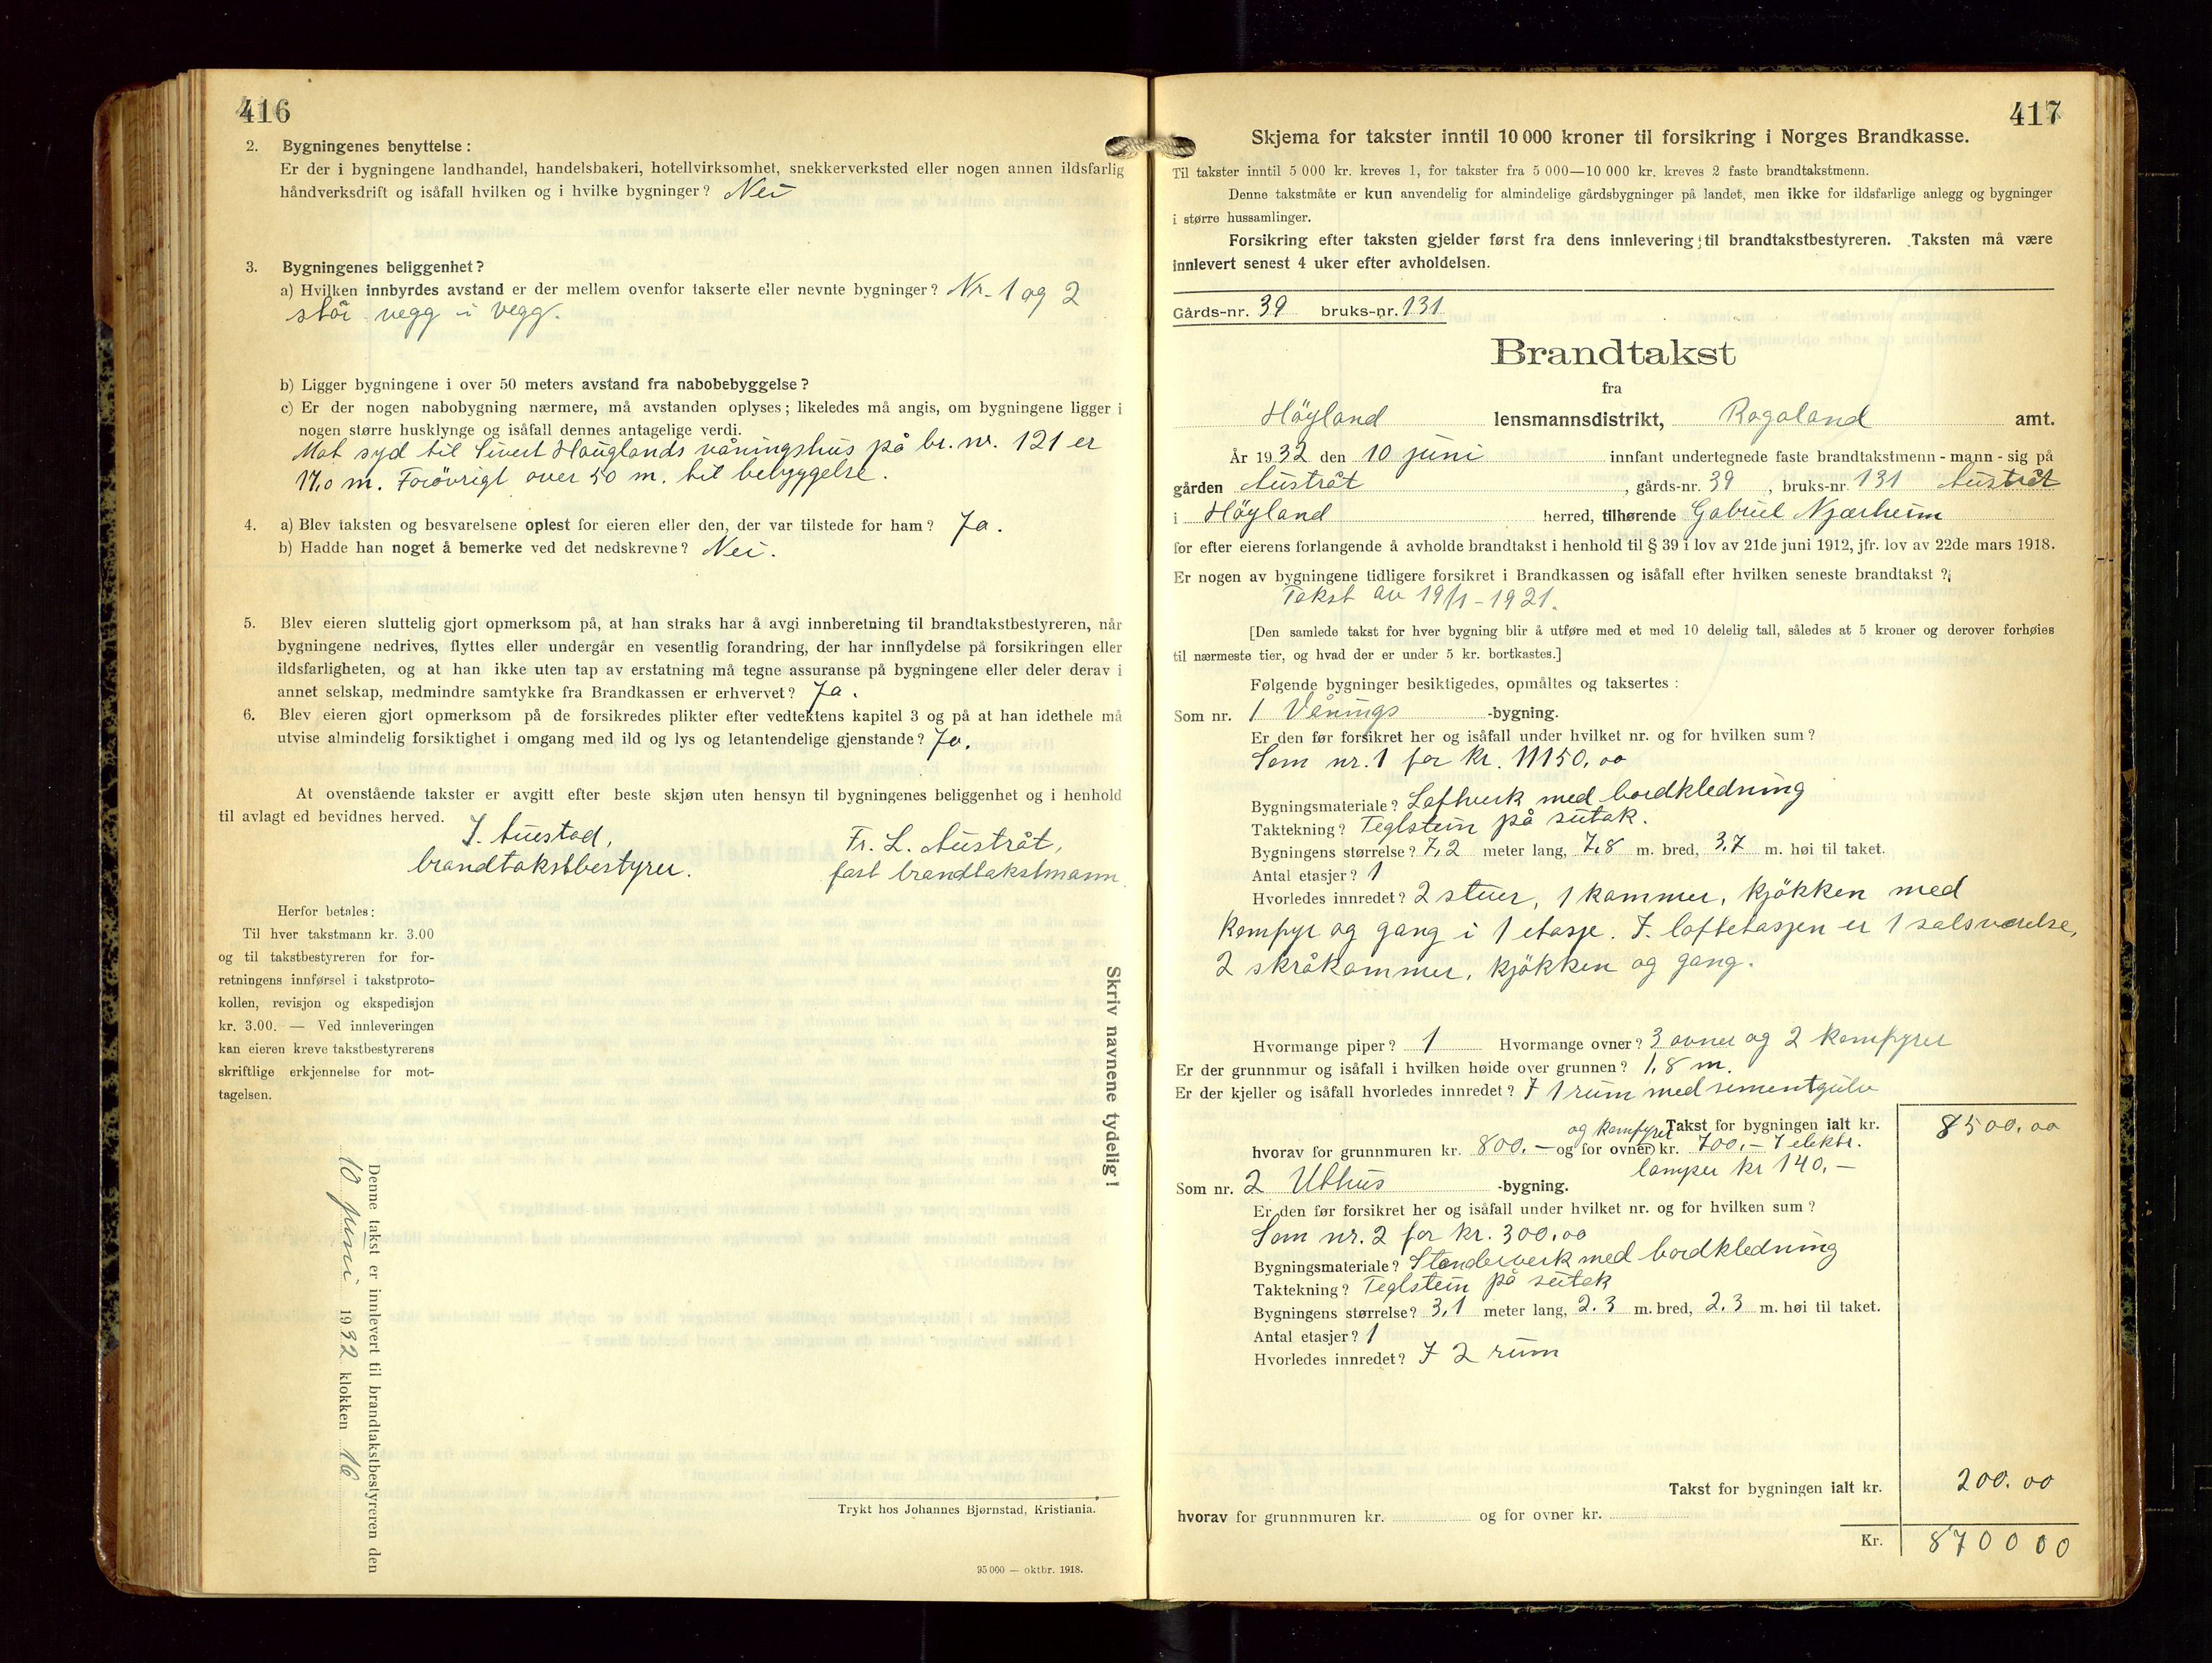 416
2. Bygningenes benyttelse:
Er der i bygningene landhandel, handelsbakeri, hotellvirksomhet, snekkerverksted eller nogen annen ildsfarlig
håndverksdrift og isåfall hvilken og i hvilke bygninger? Nei
3. Bygningenes beliggenhet?
a) Hvilken innbyrdes avstand er der mellem ovenfor takserte eller nevnte bygninger? Nr. 1 og 2
står vegg i vegg.
b) Ligger bygningene i over 50 meters avstand fra nabobebyggelse?
c) Er der nogen nabobygning nærmere, må avstanden oplyses; likeledes må angis, om bygningene ligger i
nogen større husklynge og isåfall dennes antagelige verdi.
Mot syd til Sivert Hauglands våningshus på br. nr. 121 er
17,0 m. Forövrigt over 50 m. til bebyggelse.
4. a) Blev taksten og besvarelsene oplest for eieren eller den, der var tilstede for ham? Ja.
b) Hadde han noget å bemerke ved det nedskrevne? Nei.
5. Blev eieren sluttelig gjort opmerksom på, at han straks har å avgi innberetning til brandtakstbestyreren, når
bygningene nedrives, flyttes eller undergår en vesentlig forandring, der har innflydelse på forsikringen eller
ildsfarligheten, og at han ikke uten tap av erstatning må tegne assuranse på bygningene eller deler derav i
annet selskap, medmindre samtykke fra Brandkassen er erhvervet? Ja.
6. Blev eieren gjort opmerksom på de forsikredes plikter efter vedtektens kapitel 3 og på at han idethele må
utvise almindelig forsiktighet i omgang med ild og lys og letantendelige gjenstande? Ja.
At ovenstående takster er avgitt efter beste skjøn uten hensyn til bygningenes beliggenhet og i henhold
til avlagt ed bevidnes herved.
J. Auestad, Fr. L. Austråt,
brandtakstbestyrer. fast brandtakstmann.
Herfor betales:
Til hver takstmann kr. 3.00
og til takstbestyreren for for-
retningens innførsel i takstproto-
kollen, revisjon og ekspedisjon
kr. 3.00. — Ved innleveringen
kan eieren kreve takstbestyrerens
skriftlige erkjennelse for mot-
tagelsen.
Skriv navnene tydelig!
Denne takst er innlevert til brandtakstbestyreren den
10 juni 1932 klokken 16
Trykt hos Johannes Bjørnstad, Kristiania.
95 000 — oktbr. 1918.
417
Skjema for takster inntil 10 000 kroner til forsikring i Norges Brandkasse.
Til takster inntil 5 000 kr. kreves 1, for takster fra 5 000—10 000 kr. kreves 2 faste brandtakstmenn.
Denne takstmåte er kun anvendelig for almindelige gårdsbygninger på landet, men ikke for ildsfarlige anlegg og bygninger
i større hussamlinger.
Forsikring efter taksten gjelder først fra dens innlevering til brandtakstbestyreren. Taksten må være
innlevert senest 4 uker efter avholdelsen.
Gårds-nr. 39 bruks-nr. 131
Brandtakst
fra
Höyland lensmannsdistrikt, Rogaland amt.
År 1932 den 10 juni innfant undertegnede faste brandtakstmenn - mann - sig på
gården Austråt, gårds-nr. 39, bruks-nr. 131 Austråt
i Höyland herred, tilhørende Gabriel Njærheim
for efter eierens forlangende å avholde brandtakst i henhold til § 39 i lov av 21de juni 1912, jfr. lov av 22de mars 1918.
Er nogen av bygningene tidligere forsikret i Brandkassen og isåfall efter hvilken seneste brandtakst?
Takst av 19/1-1921.
[Den samlede takst for hver bygning blir å utføre med et med 10 delelig tall, således at 5 kroner og derover forhøies
til nærmeste tier, og hvad der er under 5 kr. bortkastes.]
Følgende bygninger besiktigedes, opmåltes og taksertes:
Som nr. 1 Vånings -bygning.
Er den før forsikret her og isåfall under hvilket nr. og for hvilken sum?
Som nr. 1 for kr. 11150,00
Bygningsmateriale? Loftverk med bordkledning
Taktekning? Teglstein på sutak.
Bygningens størrelse? 7,2 meter lang, 7,8 m. bred, 3,7 m. høi til taket.
Antal etasjer? 1
Hvorledes innredet? 2 stuer, 1 kammer, kjökken med
komfyr og gang i 1 etasje. I loftetasjen er 1 salsværelse,
2 skråkammer, kjökken og gang.
Hvormange piper? 1 Hvormange ovner? 3 ovner og 2 komfyrer
Er der grunnmur og isåfall i hvilken høide over grunnen? 1,8 m.
Er der kjeller og isåfall hvorledes innredet? I 1 rum med sementgulv
og komfyrer Takst for bygningen ialt kr. 8500,00
hvorav for grunnmuren kr. 800.— og for ovner kr. 700.— 7 elektr.
lamper kr 140,—
Som nr. 2 Uthus -bygning.
Er den før forsikret her og isåfall under hvilket nr. og for hvilken sum?
Som nr. 2 for kr. 300,00
Bygningsmateriale? Stenderverk med bordkledning
Taktekning? Teglstein på sutak
Bygningens størrelse? 3,1 meter lang, 2.3 m. bred, 2,3 m. høi til taket.
Antal etasjer? 1
Hvorledes innredet? I 2 rum
Takst for bygningen ialt kr. 200.00
hvorav for grunnmuren kr. og for ovner kr.
Kr. 870000